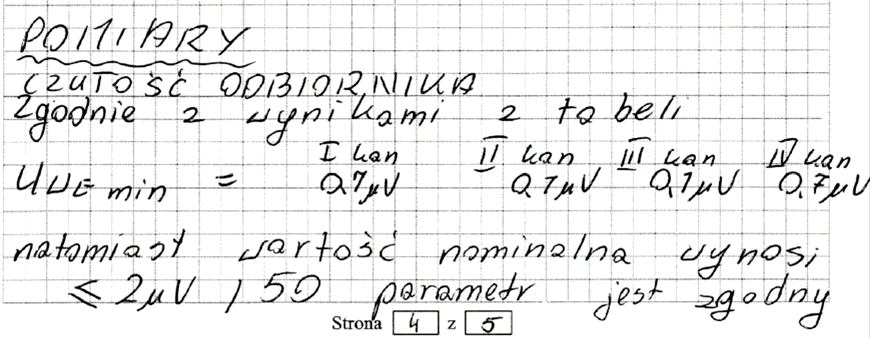 POMIARY
CZUŁOŚĆ ODBIORNIKA
Zgodnie z wynikami z tabeli
I kan II kan III kan IV kan
UWE min = 0,7µV 0,7µV 0,7µV 0,7µV
natomiast wartość nominalna wynosi
≤ 2µV / 50 parametr jest zgodny
Strona 4 z 5